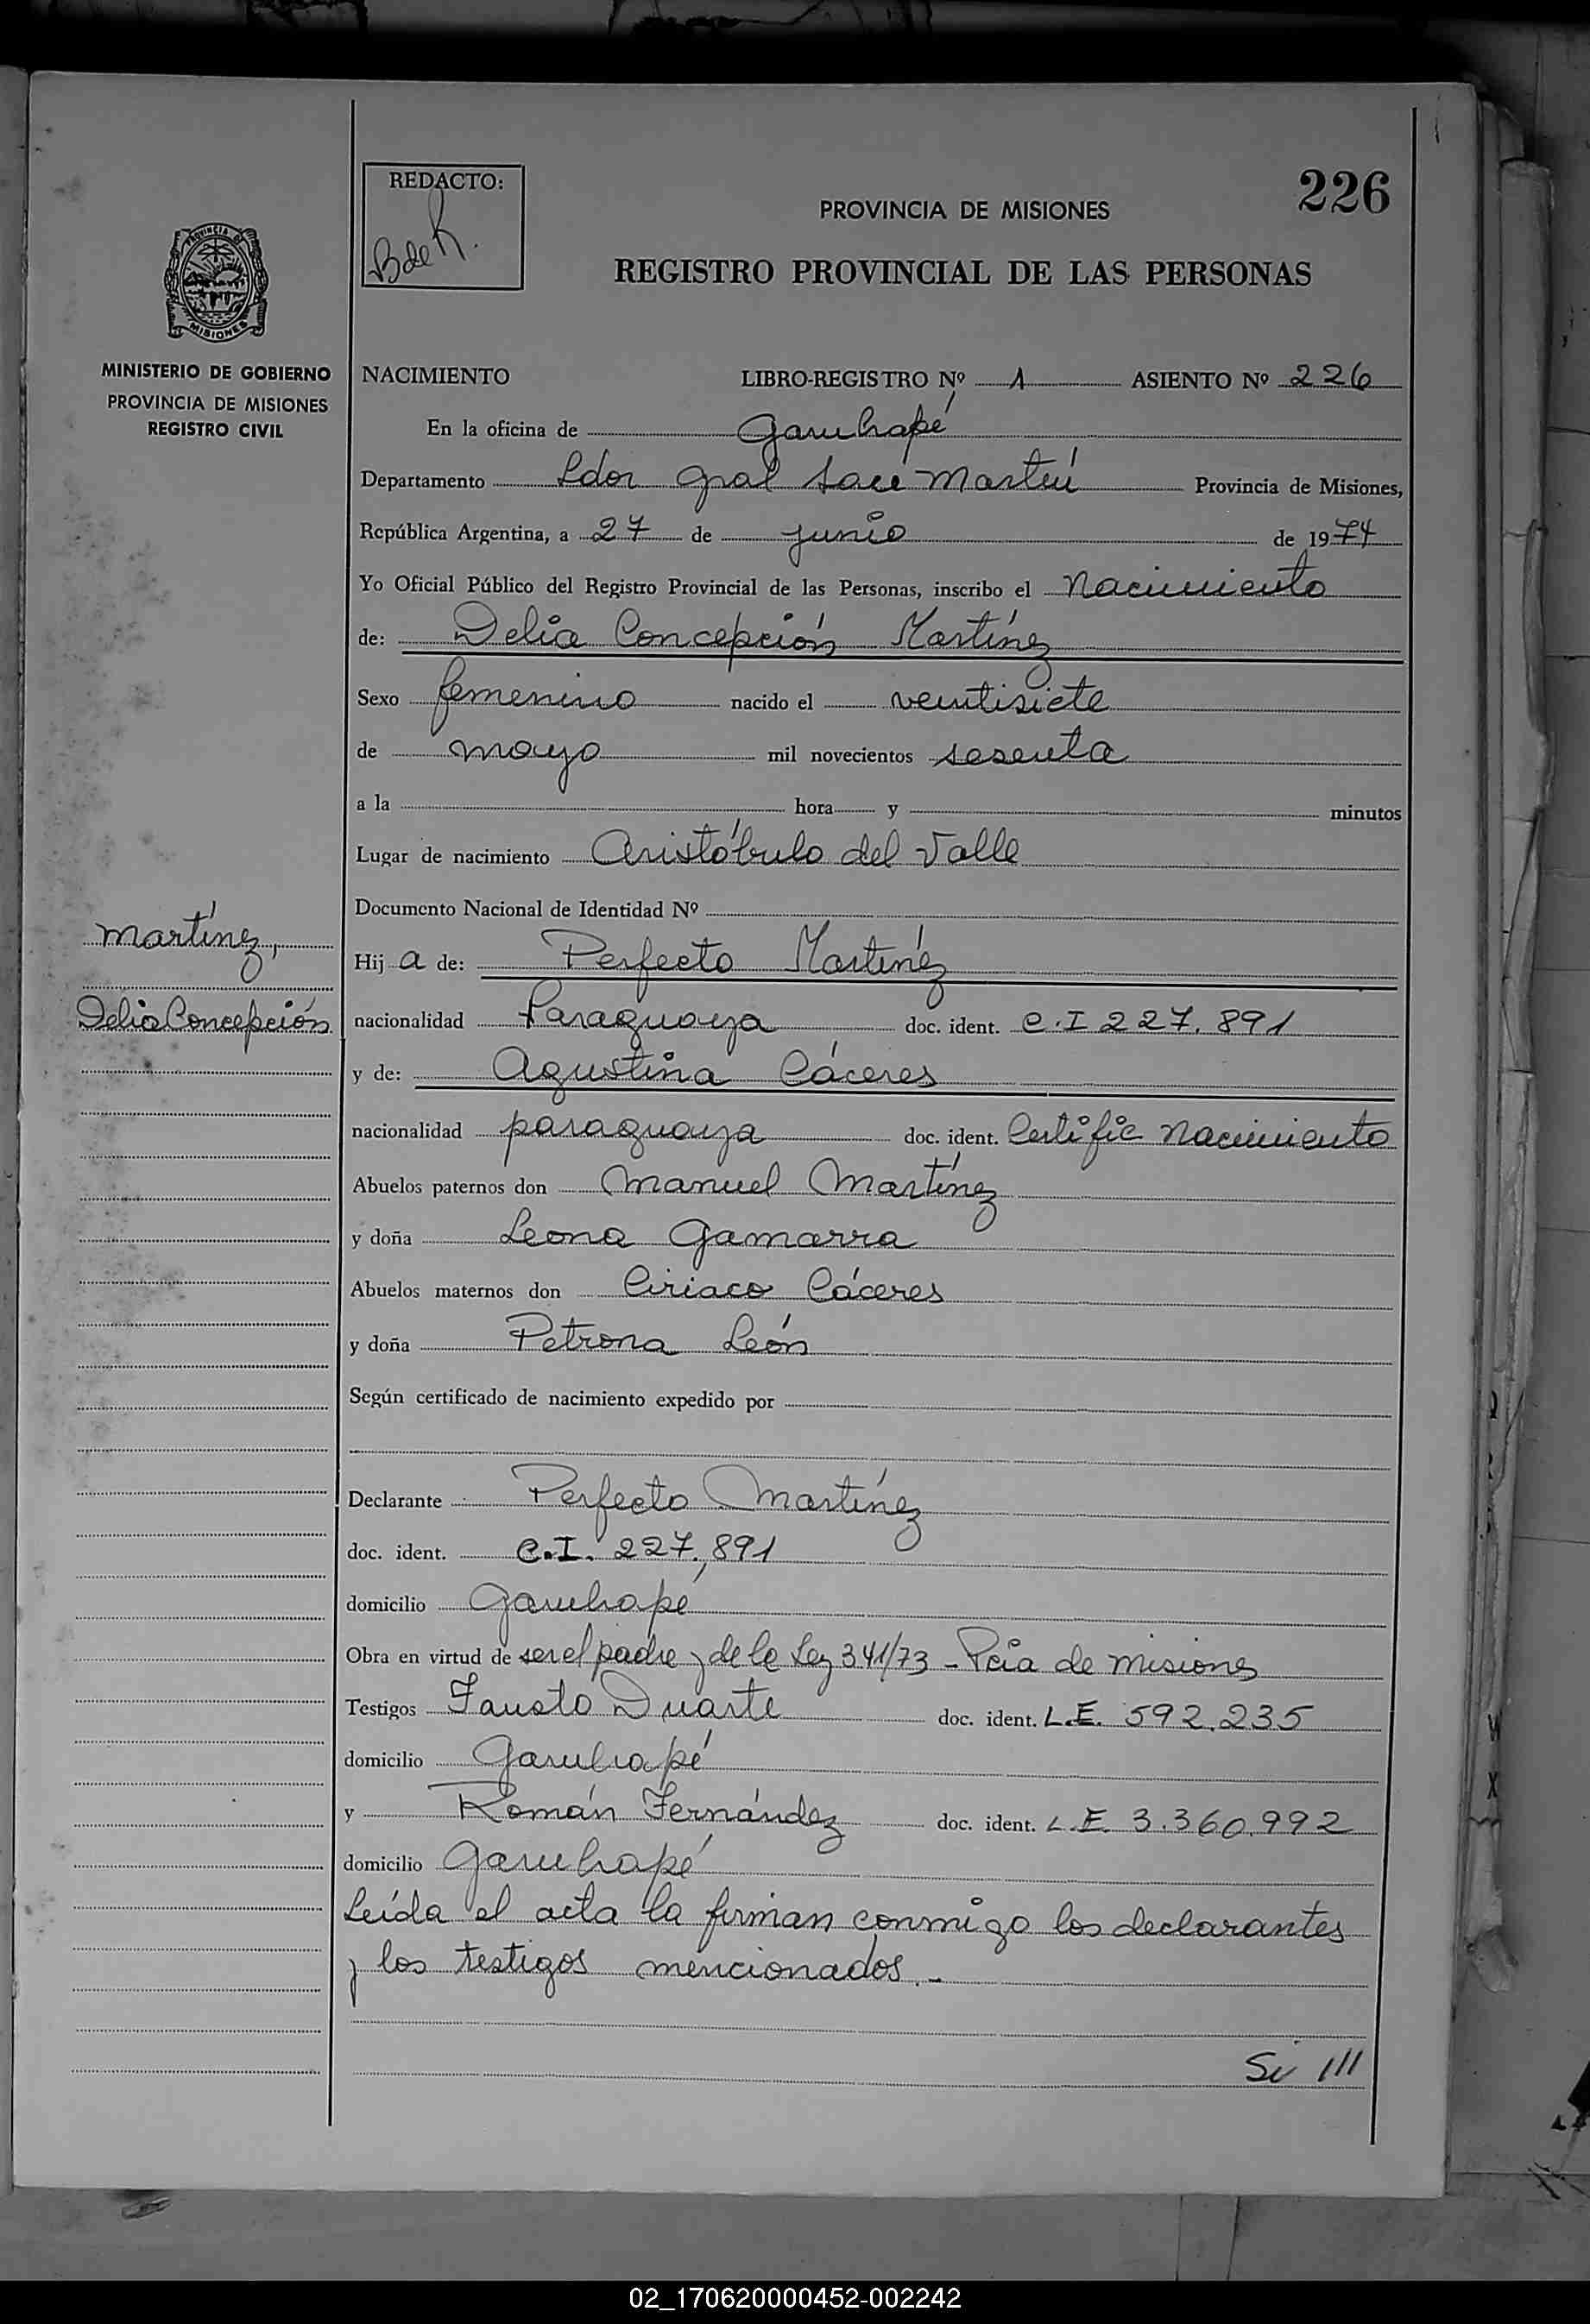 226
REDACTO:
B de R.
PROVINCIA DE MISIONES
REGISTRO PROVINCIAL DE LAS PERSONAS
PROVINCIA DE
MISIONES
MINISTERIO DE GOBIERNO
PROVINCIA DE MISIONES
REGISTRO CIVIL
NACIMIENTO LIBRO-REGISTRO Nº 1 ASIENTO Nº 226
En la oficina de Garuhapé
Departamento Ldor Gral San Martín Provincia de Misiones,
República Argentina, a 27 de junio de 1974
Yo Oficial Público del Registro Provincial de las Personas, inscribo el Nacimiento
de: Delia Concepción Martínez
Sexo femenino nacido el veintisiete
de mayo mil novecientos sesenta
a la hora y minutos
Lugar de nacimiento Aristóbulo del Valle
Documento Nacional de Identidad Nº
Martínez,
Delia Concepción
Hij a de: Perfecto Martínez
nacionalidad Paraguaya doc. ident. C.I 227.891
y de: Agustina Cáceres
nacionalidad paraguaya doc. ident. Certific Nacimiento
Abuelos paternos don Manuel Martínez
y doña Leona Gamarra
Abuelos maternos don Ciriaco Cáceres
y doña Petrona León
Según certificado de nacimiento expedido por
Declarante Perfecto Martínez
doc. ident. C.I. 227.891
domicilio Garuhapé
Obra en virtud de ser el padre y de le Ley 341/73 - Pcia de Misiones
Testigos Fausto Duarte doc. ident. L.E. 592.235
domicilio Garuhapé
y Román Fernández doc. ident. L.E. 3.360.992
domicilio Garuhapé
Leída el acta la firman conmigo los declarantes
y los testigos mencionados.-
///
02_170620000452-002242